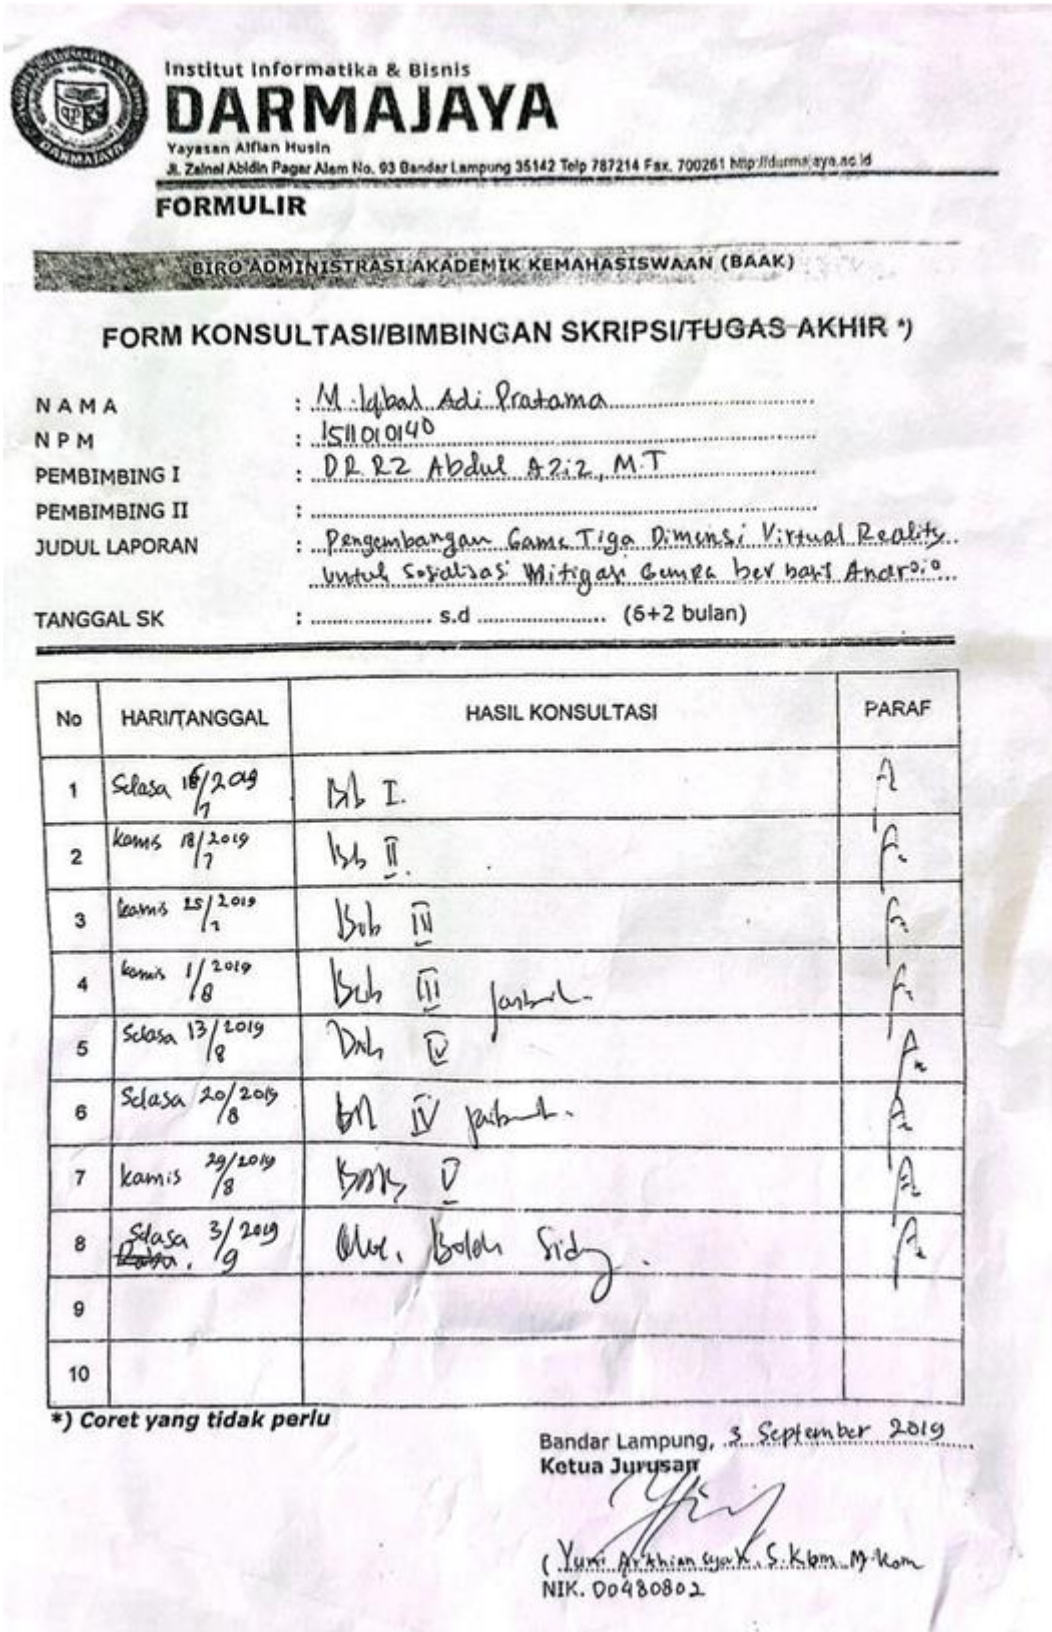 Institut Informatika & Bisnis
DARMAJAYA
Yayasan Alfian Husin
Jl. Zainal Abidin Pagar Alam No. 93 Bandar Lampung 35142 Telp 787214 Fax. 700261 http://darmajaya.ac.id
FORMULIR
BIRO ADMINISTRASI AKADEMIK KEMAHASISWAAN (BAAK)
FORM KONSULTASI/BIMBINGAN SKRIPSI/TUGAS AKHIR *)
NAMA : M. Iqbal Adi Pratama
NPM : 1511010140
PEMBIMBING I : DR. RZ Abdul Aziz, M.T
PEMBIMBING II :
JUDUL LAPORAN : Pengembangan Game Tiga Dimensi Virtual Reality
untuk Sosialisasi Mitigasi Gempa berbasis Android
TANGGAL SK : .......... s.d .......... (6+2 bulan)
No HARI/TANGGAL HASIL KONSULTASI PARAF
1 Selasa 16/7 2019 Bab I.
2 Kamis 18/7 2019 Bab II.
3 Kamis 25/7 2019 Bab III
4 Kamis 1/8 2019 Bab III
5 Selasa 13/8 2019 Bab IV
6 Selasa 20/8 2019 Bab IV
7 Kamis 29/8 2019 Bab V
8 Selasa 3/9 2019 Boleh Sidang.
9
10
*) Coret yang tidak perlu
Bandar Lampung, 3 September 2019
Ketua Jurusan
(Yuni Arkhiansyah, S.Kom., M.Kom
NIK. 00480802